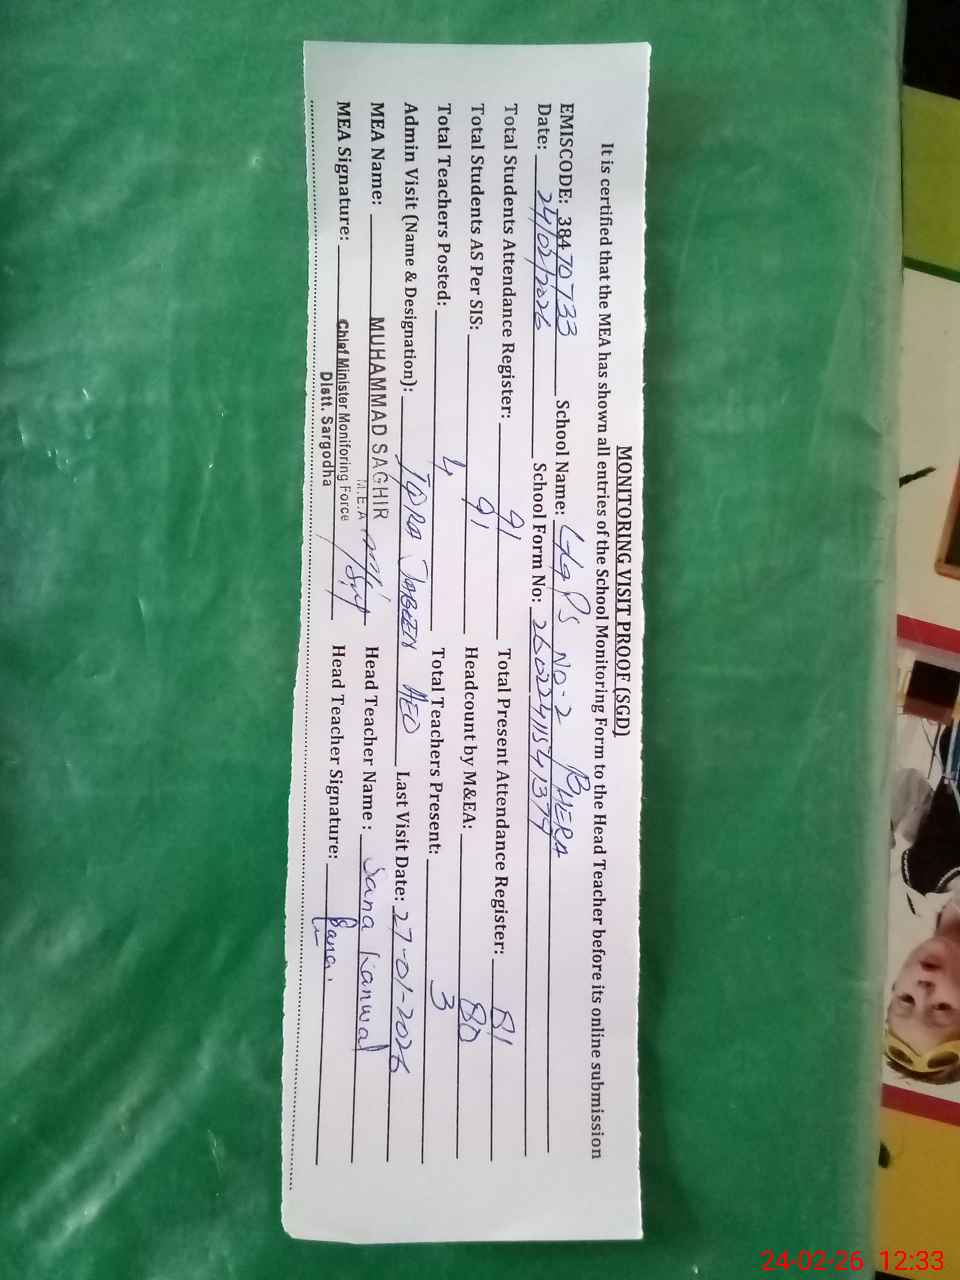 MONITORING VISIT PROOF (SGD)
It is certified that the MEA has shown all entries of the School Monitoring Form to the Head Teacher before its online submission
EMISCODE: 38470733 School Name: GGPS NO-2 BHERA
Date: 24/02/2026 School Form No:
Total Students Attendance Register: 91 Total Present Attendance Register: 81
Total Students AS Per SIS: 91 Headcount by M&EA: 80
Total Teachers Posted: 4 Total Teachers Present: 3
Admin Visit (Name & Designation): IQRA JABEEN AEO Last Visit Date: 27-01-2026
MEA Name: MUHAMMAD SAGHIR Head Teacher Name: Sana Kanwal
M.E.A
MEA Signature: Chief Minister Moniforing Force Head Teacher Signature: Sana
Distt. Sargodha
24-02-26 12:33